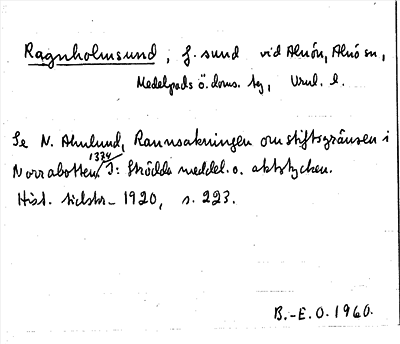 Ragnholmsund, f. sund vid Alnön, Alnö sn,
Medelpads ö. doms. tg, Vrml. l.
Se N. Ahnlund, Rannsakningen om stiftsgränsen i
Norrabotten 1374, I: Strödda meddel. o. aktstycken.
Hist. tidskr. 1920, s. 223.
B.-E.O. 1960.